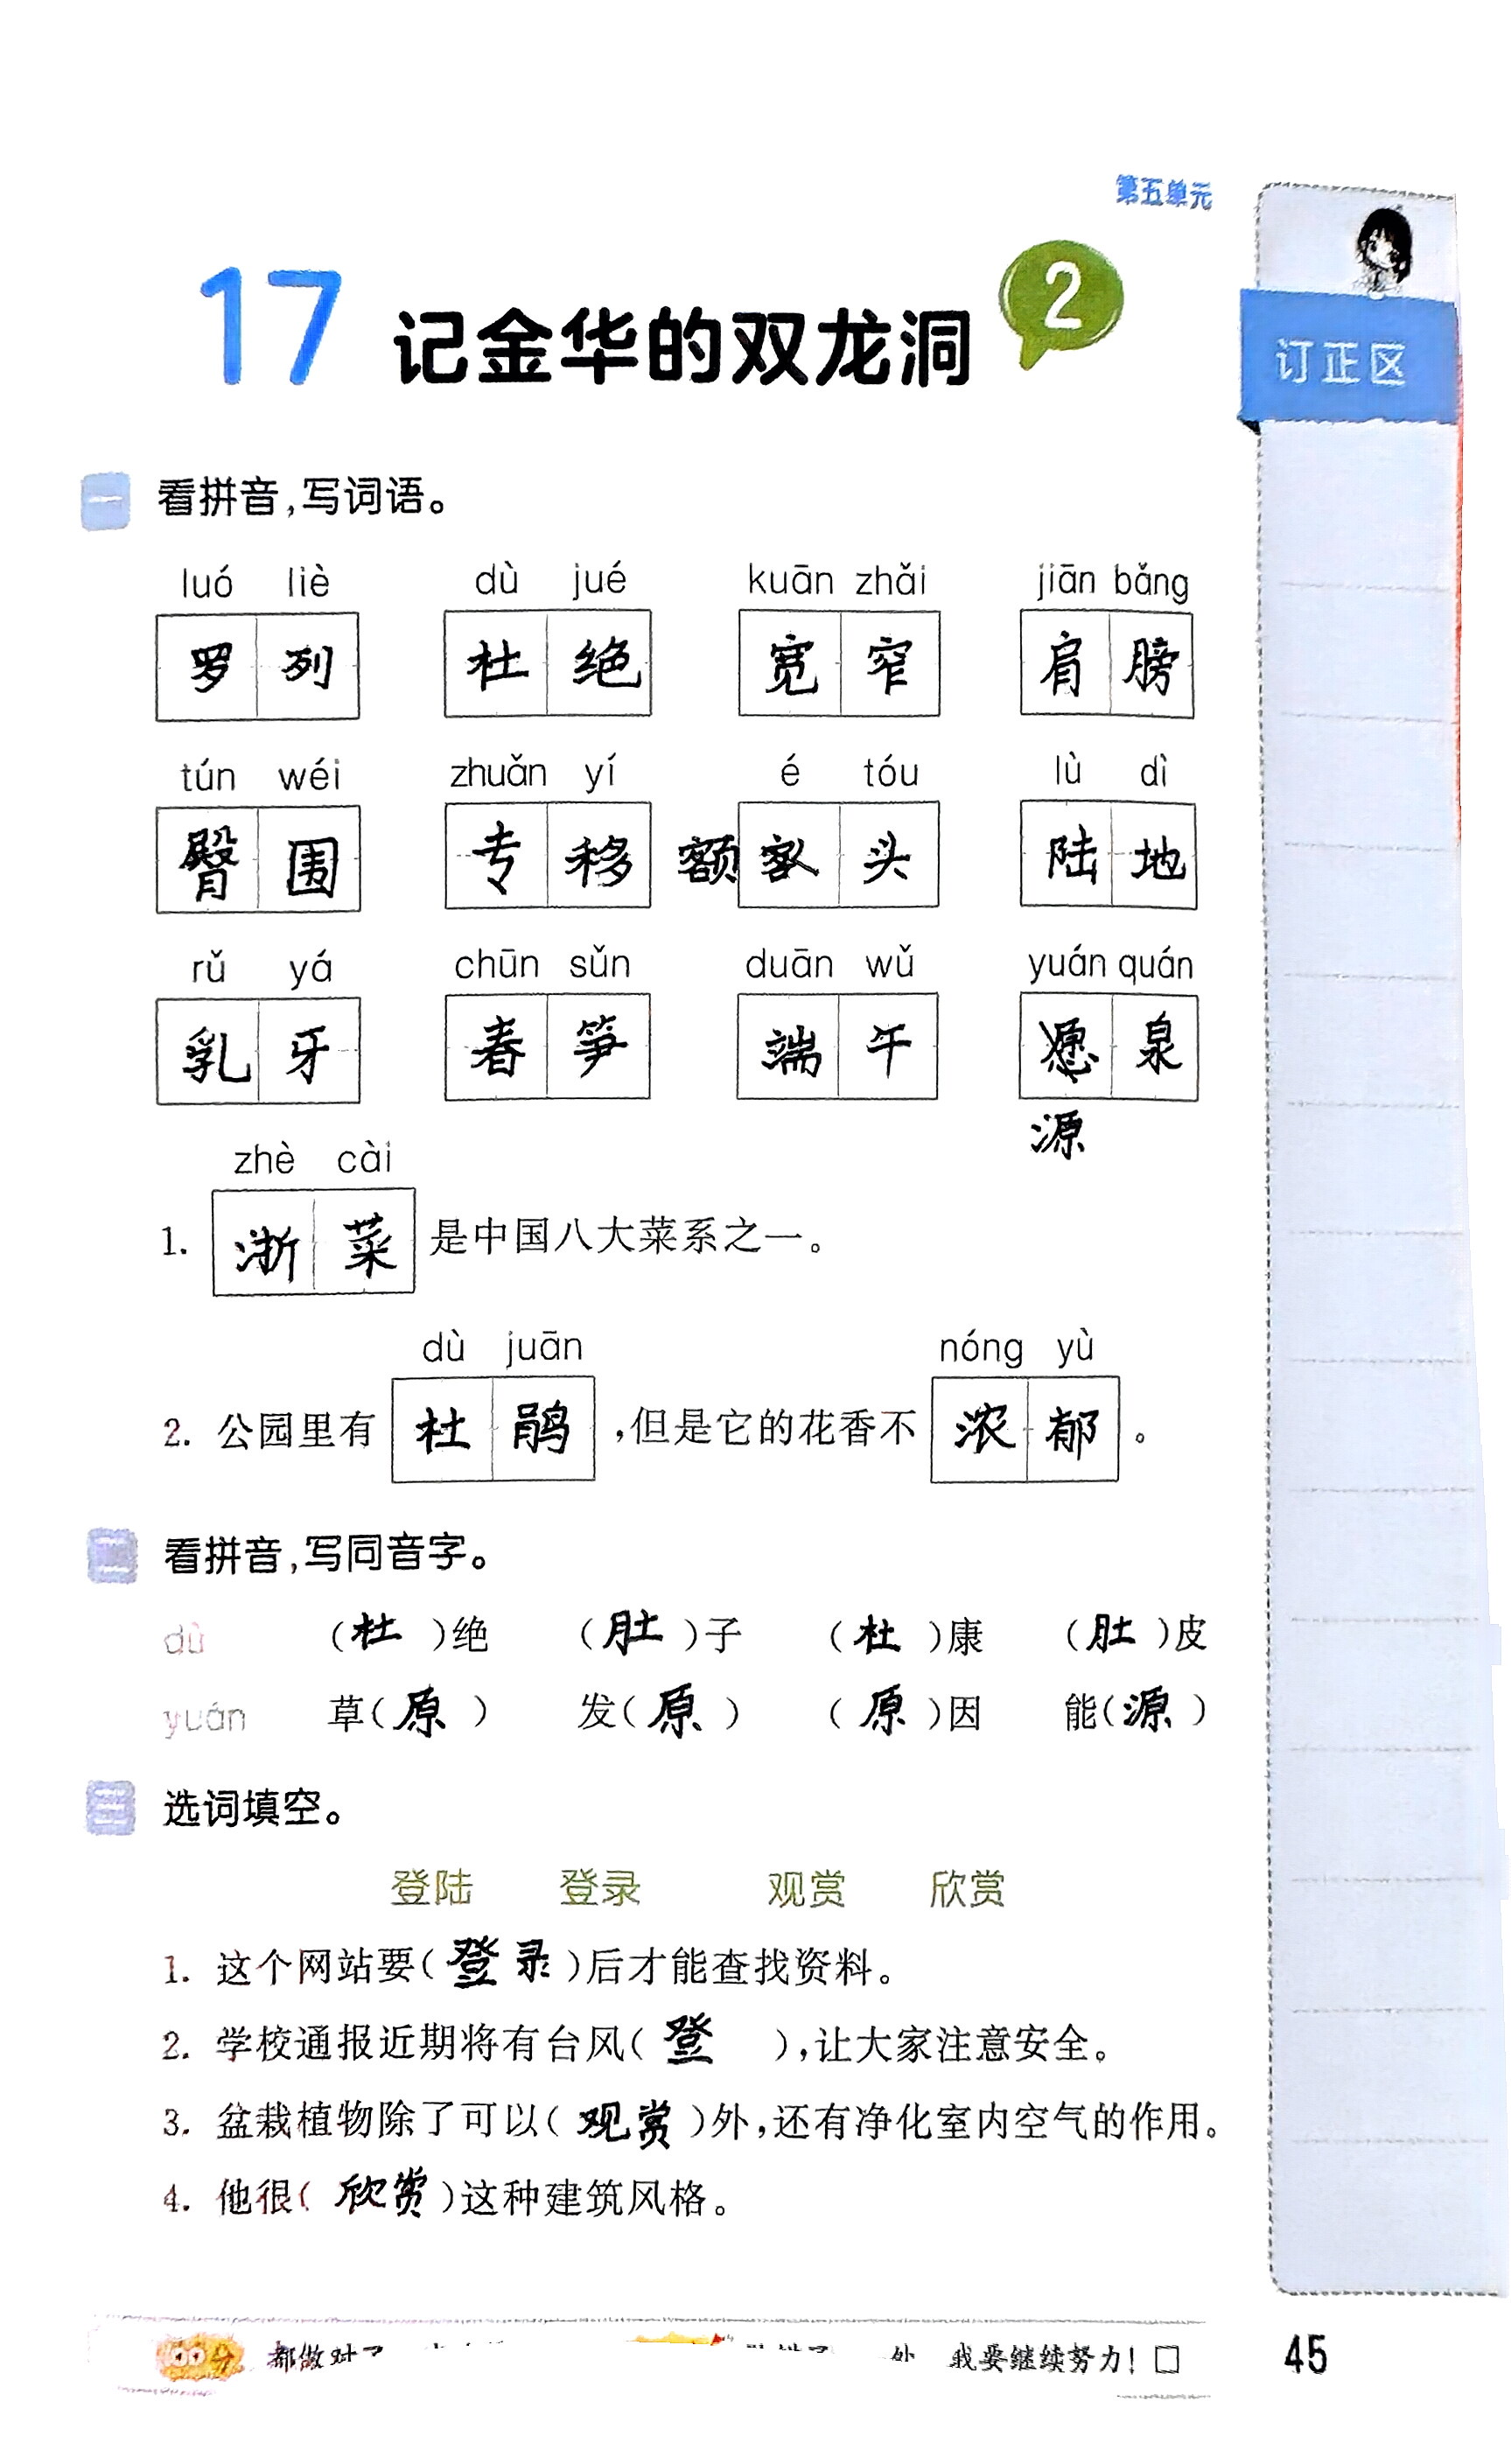 第五单元
17 记金华的双龙洞 2
订正区
一 看拼音,写词语。
luó liè dù jué kuān zhǎi jiān bǎng
罗列 杜绝 宽窄 肩膀
tún wéi zhuǎn yí é tóu lù dì
臀围 专移 额 头 陆地
rǔ yá chūn sǔn duān wǔ yuán quán
乳牙 春笋 端午 愿泉
源
zhè cài
1. 浙菜 是中国八大菜系之一。
dù juān nóng yù
2. 公园里有 杜鹃 ,但是它的花香不 浓郁 。
二 看拼音,写同音字。
dù (杜)绝 (肚)子 (杜)康 (肚)皮
yuán 草(原) 发(原) (原)因 能(源)
三 选词填空。
登陆 登录 观赏 欣赏
1. 这个网站要(登录)后才能查找资料。
2. 学校通报近期将有台风(登 ),让大家注意安全。
3. 盆栽植物除了可以(观赏)外,还有净化室内空气的作用。
4. 他很(欣赏)这种建筑风格。
都做对了 处 我要继续努力!□
45